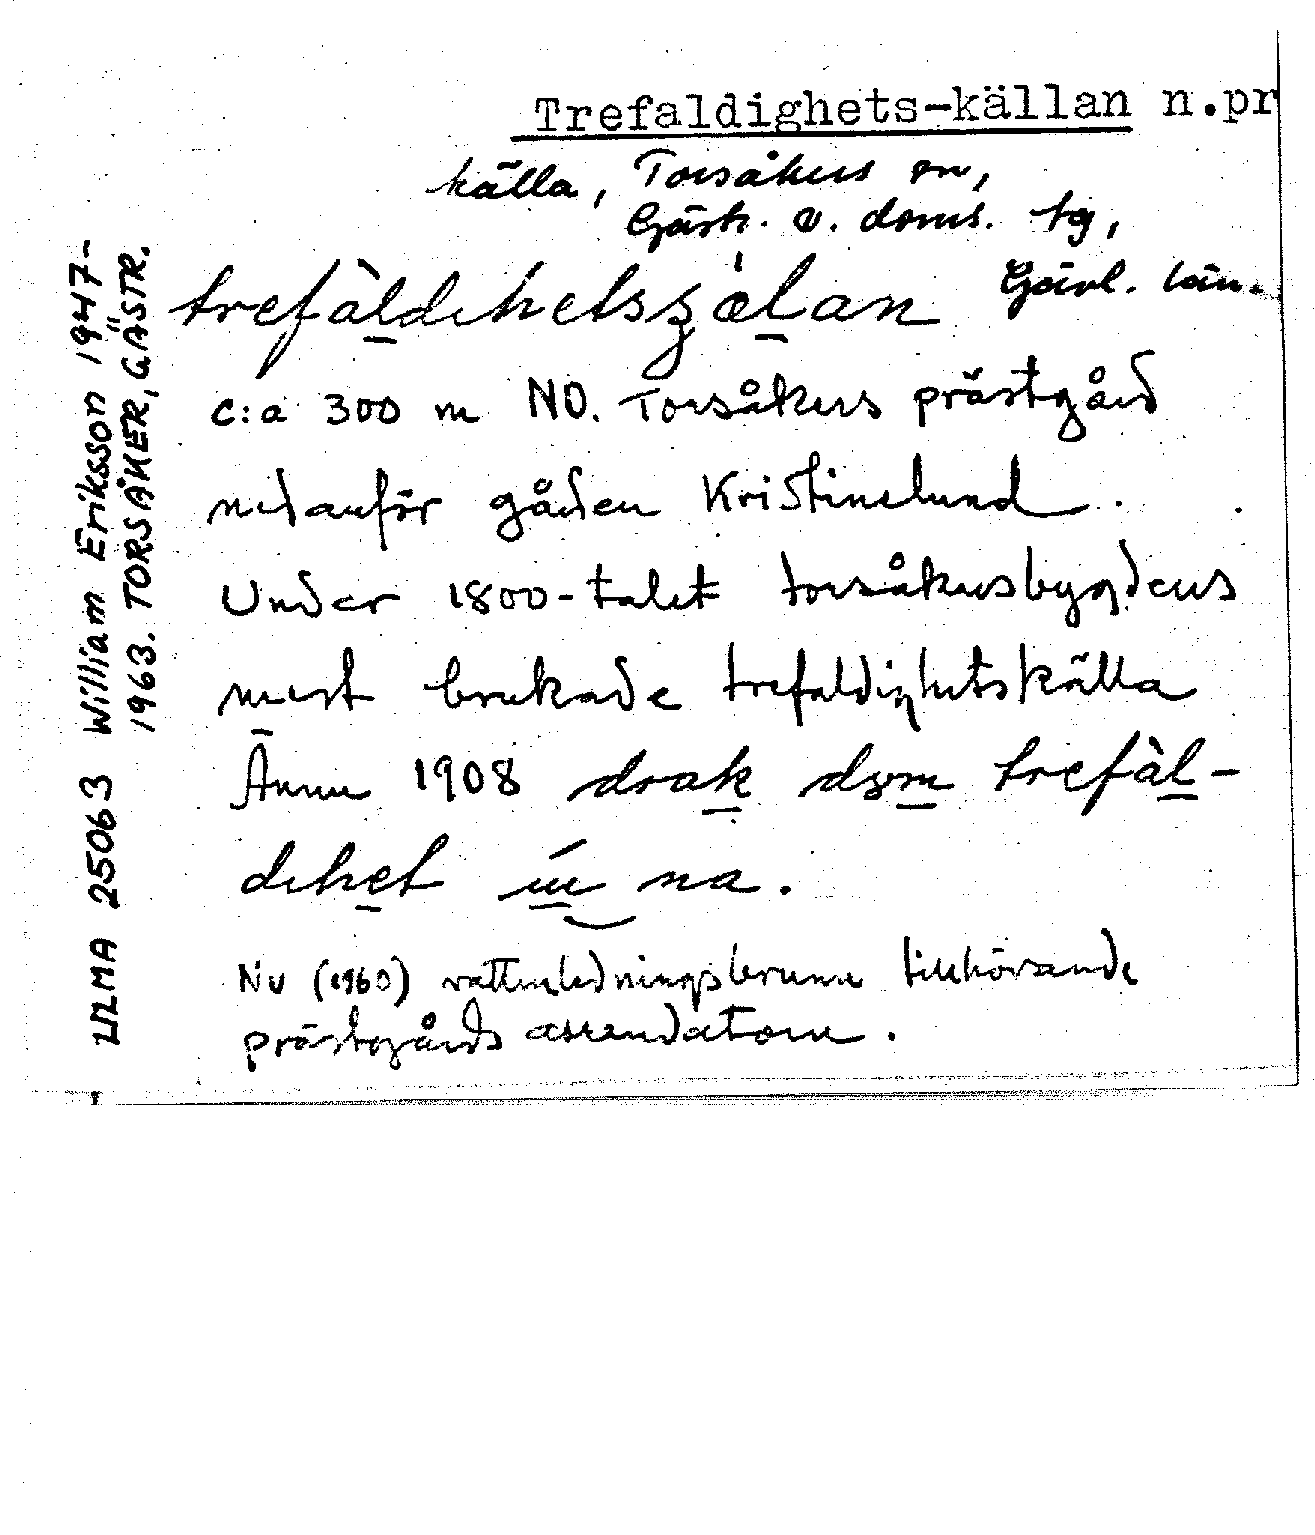 Trefaldighets-källan n.pr
källa, Torsåkers sn,
Gästr. v. doms. tg,
Gävl. län.
trefàldihetsʒælan
c:a 300 m NO. Torsåkers prästgård
nedanför gården Kristinelund.
Under 1800-talet torsåkersbygdens
mest brukade trefaldighetskälla
Ännu 1908 drak dɘm trefàl-
dihet na.
Nu (1960) vattenledningsbrunn tillhörande
prästgårds arrendatorn.
ULMA 25063 William Eriksson 1947-
1963. TORSÅKER, GÄSTR.